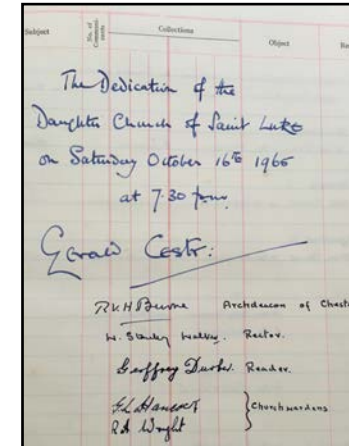 Subject
No. of Communicants
Collections
Object
The Dedication of the
Daughter Church of Saint Luke
on Saturday October 16th 1965
at 7.30 p.m.
Gerald Cestr:
R.V.H. Burne Archdeacon of Chest
W. Stanley Walker. Rector.
Geoffrey Reader.
G.L. Hancock } Churchwardens
R A Wright